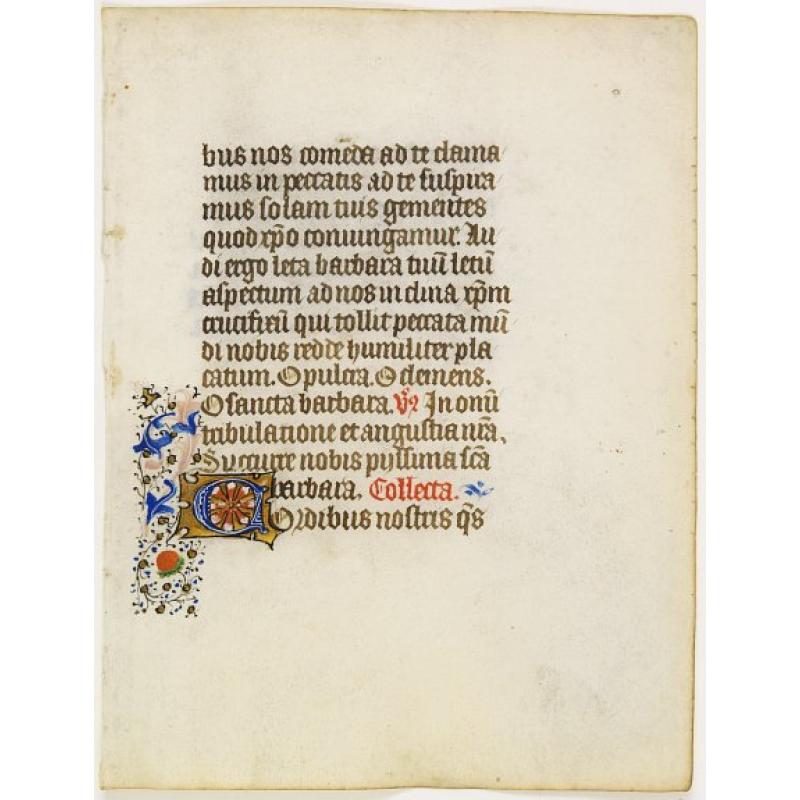 bus nos comēda ad te clama
mus in peccatis ad te suspira
mus solam tuis gementes
quod xp̄o coniungamur. Au
di ergo leta barbara tuū letū
aspectum ad nos inclina xp̄m
crucifixū qui tollit peccata mū
di nobis redde humiliter pla
catum. O pulcra. O clemens.
O sancta barbara. V̄ In on̄i
tribulatione et angustia nr̄a.
Succurre nobis pijssima sc̄a
barbara. Collecta.
Cordibus nostris q̄s